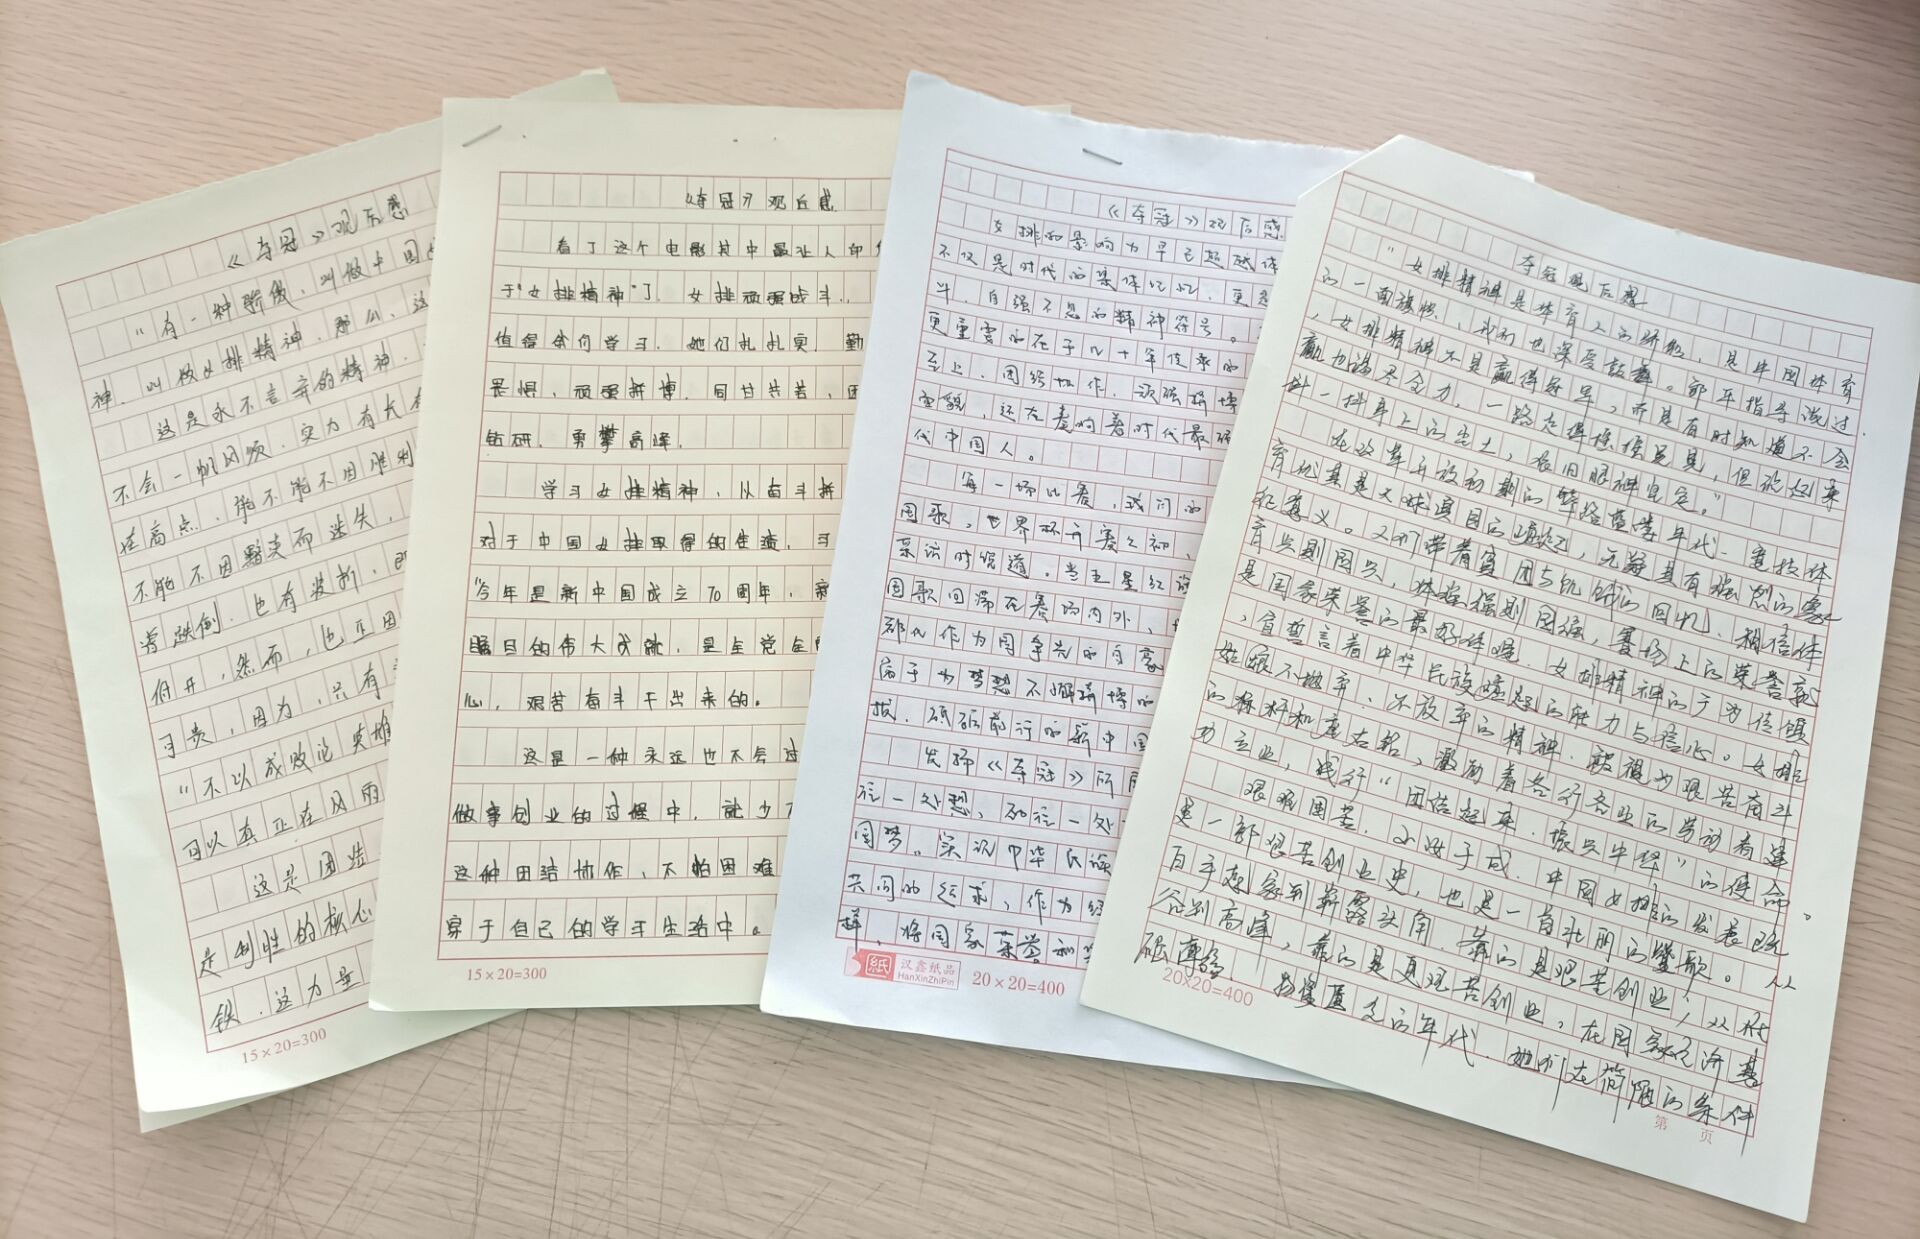 《夺冠》观后感
“有一种骄傲，叫做中国
神，叫做女排精神。那么，这
这是永不言弃的精神。
不会一帆风顺，实力有长有
在高点，能不能不因胜利
不能不因黯淡而迷失，
着跌倒，也有波折，即
得开，然而，也正因
可贵，因为，只有
“不以成败论英雄
可以真正在风雨
这是团结
是制胜的核心
铁，这力量
15×20=300
《夺冠》观后感
看了这个电影其中最让人印
于“女排精神”了，女排顽强战斗、
值得我们学习，她们扎扎实，勤
畏惧，顽强拼搏，同甘共苦，团
钻研，勇攀高峰。
学习女排精神，以奋斗拼
对于中国女排取得的佳绩，习
“今年是新中国成立70周年，新
瞩目的伟大成就，是全党全
心，艰苦奋斗干出来的。
这是一种永远也不会过
做事创业的过程中，就少不
这种团结协作、不怕困难
穿于自己的学习生活中。
15×20=300
《夺冠》观后感
女排的影响力早已超越体
不仅是时代的集体记忆，更是
斗、自强不息的精神符号。
更重要的在于几十年传承的
至上、团结协作、顽强拼搏
面貌，还在影响着时代最强
代中国人。
每一场比赛，我们的
国歌，世界杯开赛之初，
采访时说道，当五星红旗
国歌回荡在赛场内外，
都代作为国争光的自豪
后于为梦想不懈拼搏的
拔、砥砺前行的新中国
发挥《夺冠》所
往一处想，劲往一处
国梦。实现中华民族
共同的追求，作为
样，将国家荣誉和
纸 汉鑫纸品
HanXinZhiPin
20×20=400
夺冠观后感
“女排精神是体育人的骄傲，是中国体育
的一面旗帜，我们也深受鼓舞。郎平指导说过，
，女排精神不是赢得冠军，而是有时知道不会
赢也竭尽全力，一路走得摇摇晃晃，但站起来
抖一抖身上的尘土，依旧眼神坚定。”
在改革开放初期的筚路蓝缕年代，竞技体
育尤其是大球项目的崛起，无疑具有强烈的象
征意义。人们带着贫困与饥饿的回忆，相信体
育兴则国兴，体育强则国强，赛场上的荣誉就
是国家荣誉的最好体现。女排精神的广为传颂
，宣誓言着中华民族崛起的能力与信心。女排
姑娘不抛弃、不放弃的精神，被视为艰苦奋斗
的标杆和座右铭，激励着各行各业的劳动者建
功立业，践行“团结起来，振兴中华”的使命。
艰难困苦，玉汝于成，中国女排的发展既
是一部艰苦创业史，也是一首壮丽的赞歌。从
白手起家到崭露头角，靠的是艰苦创业，从低
谷到高峰，靠的是更艰苦创业，在国家经济基
础薄弱、物资匮乏的年代，她们在简陋的条件
20×20=400
第 页